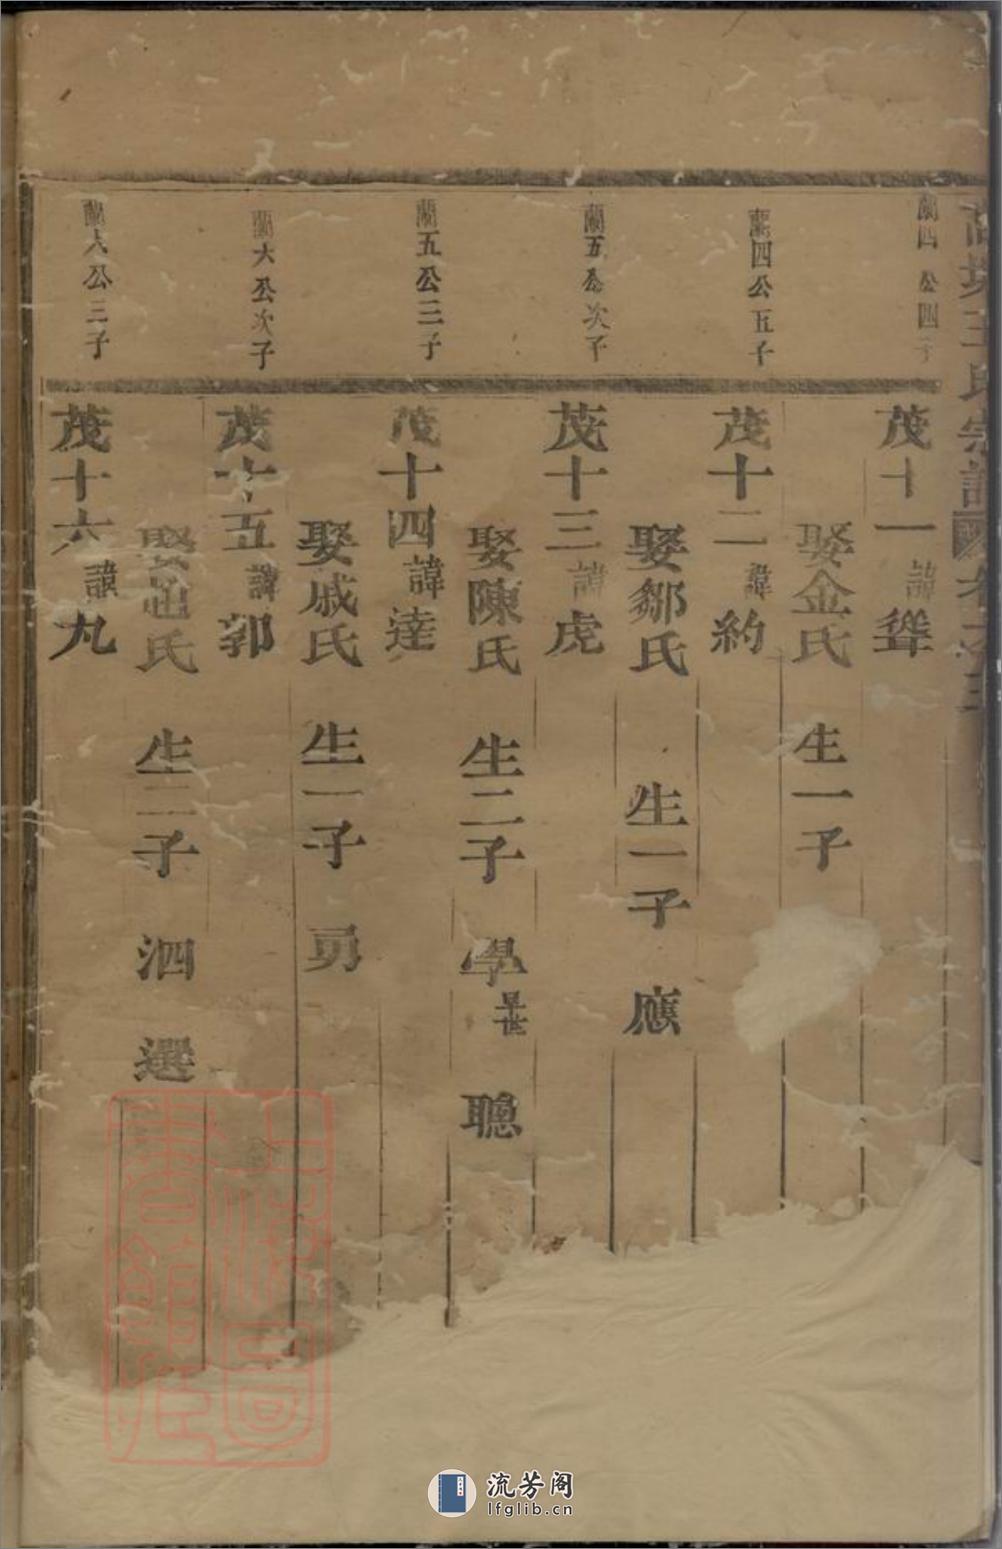 王氏宗譜
卷之三
蘭四公四子
茂十一諱聳
娶金氏 生一子
蘭四公五子
茂十二諱約
娶鄒氏 生一子 應
蘭五公次子
茂十三諱虎
娶陳氏 生二子 學早世 聰
蘭五公三子
茂十四諱達
娶戚氏 生一子 勇
蘭六公次子
茂十五諱郭
娶 氏 生二子 泗 選
蘭六公三子
茂十六諱九
上海圖書館藏
流芳阁
lfglib.cn